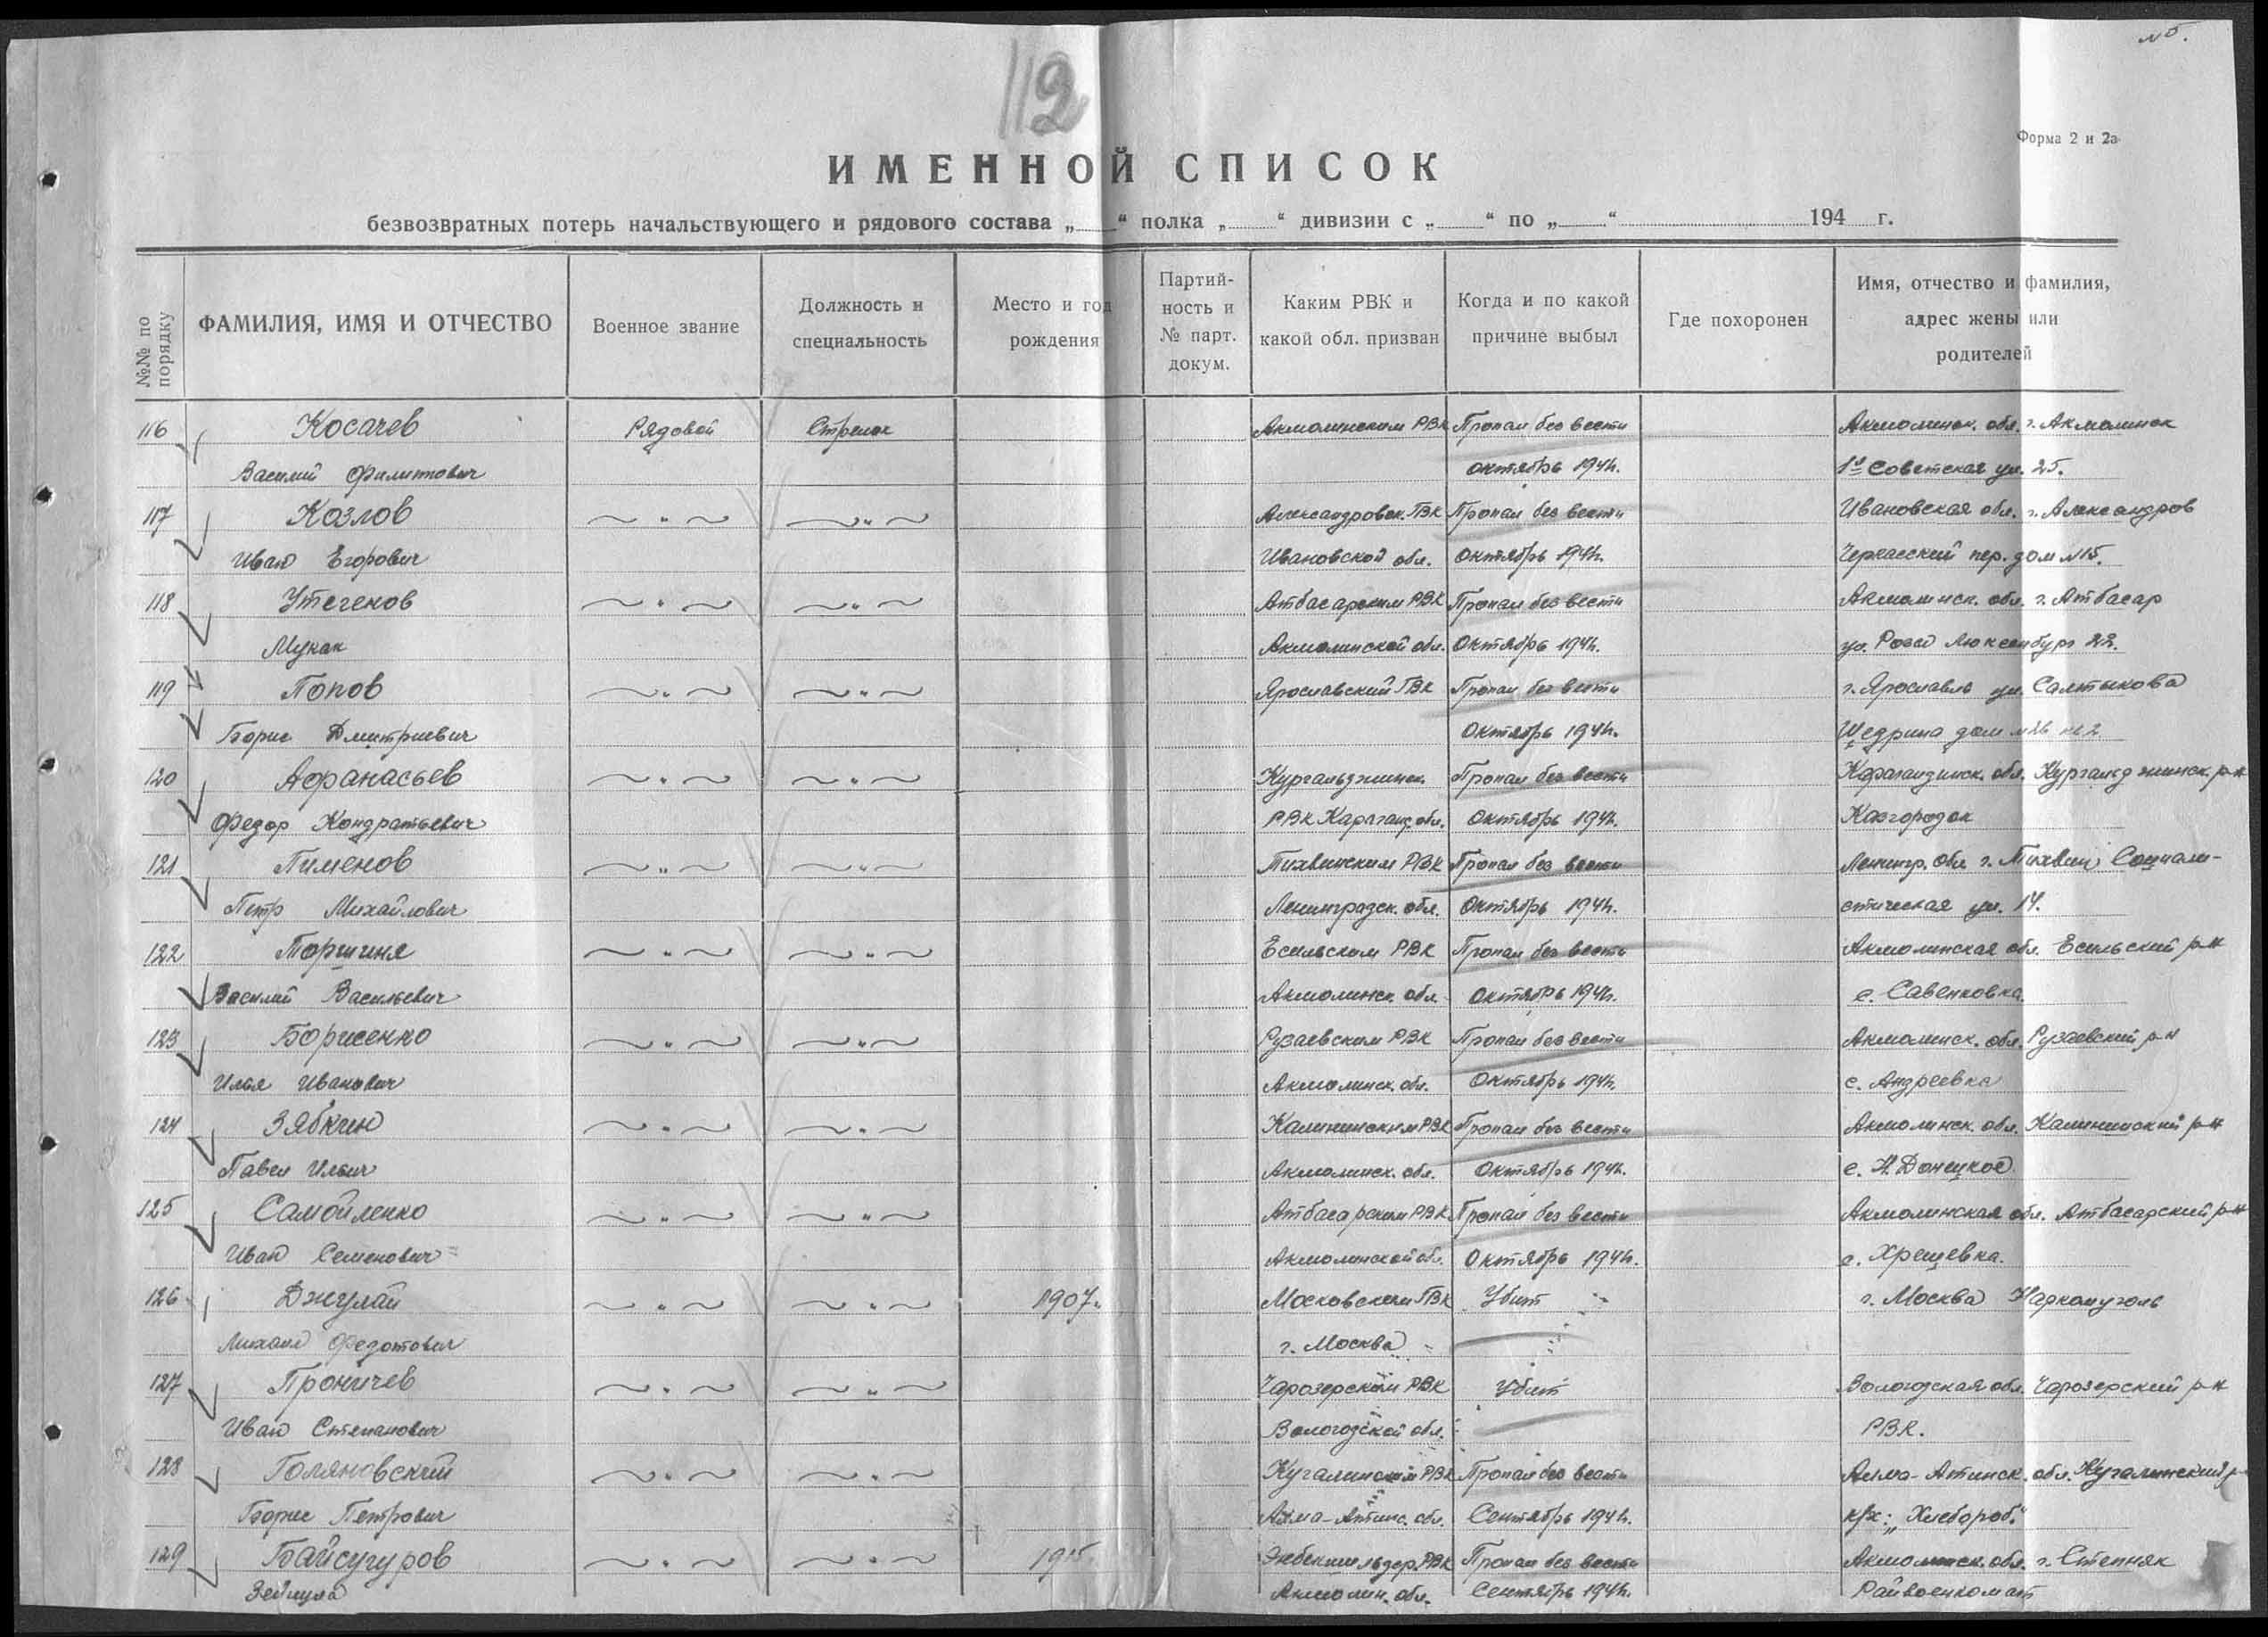 112
№ 5.
Форма 2 и 2а
ИМЕННОЙ СПИСОК
безвозвратных потерь начальствующего и рядового состава „ “ полка „ “ дивизии с „ “ по „ “ 194 г.
№№ по порядку
ФАМИЛИЯ, ИМЯ И ОТЧЕСТВО
Военное звание
Должность и специальность
Место и год рождения
Партий-ность и № парт. докум.
Каким РВК и какой обл. призван
Когда и по какой причине выбыл
Где похоронен
Имя, отчество и фамилия, адрес жены или родителей
116 Косачев Рядовой Стрелок Акмолинским РВК Пропал без вести Акмолинск. обл. г. Акмолинск
Василий Филиппович октябрь 1941г. 1я Советская ул. 25.
117 Козлов ~ " ~ ~ " ~ Александровск. ГВК Пропал без вести Ивановская обл. г. Александров
Иван Егорович Ивановской обл. октябрь 1941г. Черкасский пер. дом №15.
118 Утегенов ~ " ~ ~ " ~ Атбасарским РВК Пропал без вести Акмолинск. обл. г. Атбасар
Мукан Акмолинской обл. Октябрь 1941г. ул. Роза Люксенбург 22.
119 Попов ~ " ~ ~ " ~ Ярославский ГВК Пропал без вести г. Ярославль ул. Салтыкова
Борис Дмитриевич Октябрь 1941г. Щедрина дом
120 Афанасьев ~ " ~ ~ " ~ Кургальджинск. Пропал без вести Карагандинск. обл. Кургальджинск. р-н
Федор Кондратьевич РВК Караганд. обл. Октябрь 1941г. Казгородок
121 Пименов ~ " ~ ~ " ~ Тихвинским РВК Пропал без вести Ленингр. обл. г. Тихвин Социали-
Петр Михайлович Ленинградск. обл. Октябрь 1941г. стическая ул. 14.
122 Торшиня ~ " ~ ~ " ~ Есильском РВК Пропал без вести Акмолинская обл. Есильский р-н
Василий Васильевич Акмолинск. обл. Октябрь 1941г. с. Савенковка.
123 Борисенко ~ " ~ ~ " ~ Рузаевским РВК Пропал без вести Акмолинск. обл. Рузаевский р-н
Илья Иванович Акмолинск. обл. Октябрь 1941г. с. Андреевка
124 Зябкин ~ " ~ ~ " ~ Калининским РВК Пропал без вести Акмолинск. обл. Калининский р-н
Павел Ильич Акмолинск. обл. Октябрь 1941г. с. Н. Донецкое.
125 Самойленко ~ " ~ ~ " ~ Атбасарским РВК Пропал без вести Акмолинская обл. Атбасарский р-н
Иван Семенович Акмолинской обл. Октябрь 1941г. с. Хрещевка.
126 Джулай ~ " ~ ~ " ~ 1907г. Московским ГВК Убит г. Москва Наркомуголь
Михаил Федотович г. Москва
127 Проничев ~ " ~ ~ " ~ Чарозерский РВК Убит Вологодская обл. Чарозерский р-н
Иван Степанович Вологодской обл. РВК.
128 Голяновский ~ " ~ ~ " ~ Кугалинский РВК Пропал без вести Алма-Атинск. обл. Кугалинский р-
Борис Петрович Алма-Атинс. обл. Сентябрь 1941г. к/х: „Хлебороб."
129 Байсугуров ~ " ~ ~ " ~ Энбекшильдер. РВК Пропал без вести Акмолинск. обл. г. Степняк
Зейнула Акмолин. обл. Сентябрь 1941г. Райвоенкомат